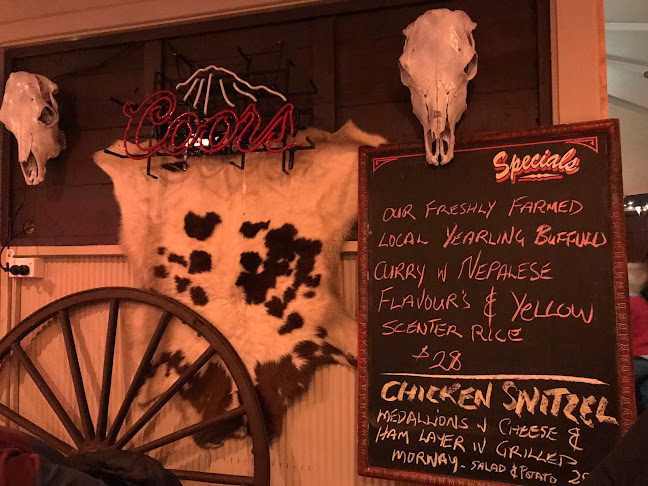 Coors
Specials
OUR FRESHLY FARMED
LOCAL YEARLING BUFFULO
CURRY W NEPALESE
FLAVOUR'S & YELLOW
SCENTER RICE
$28
CHICKEN SNITZEL
MEDALLIONS W CHEESE &
HAM LAYER W GRILLED
MORNAY - SALAD & POTATO